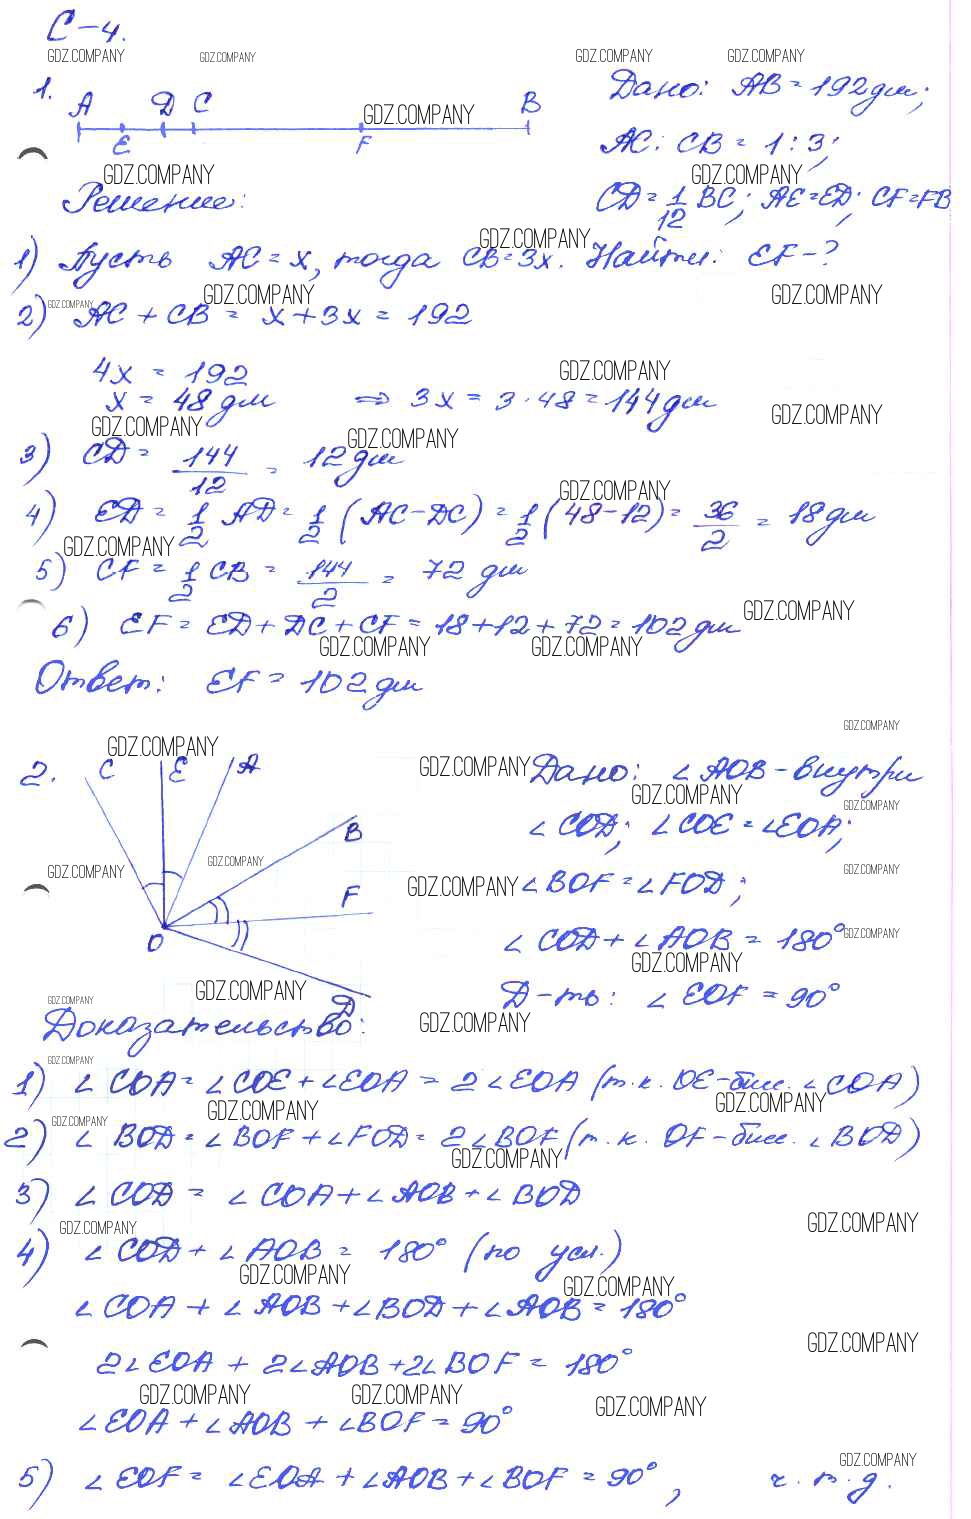 С-4.
GDZ.COMPANY GDZ.COMPANY GDZ.COMPANY GDZ.COMPANY
1. A D C B Дано: AB = 192 дм;
GDZ.COMPANY
E F AC : CB = 1 : 3;
GDZ.COMPANY GDZ.COMPANY
Решение: CD = 1/12 BC; AE = ED; CF = FB
GDZ.COMPANY
1) Пусть AC = x, тогда CB = 3x. Найти: EF - ?
GDZ.COMPANY GDZ.COMPANY GDZ.COMPANY
2) AC + CB = x + 3x = 192
4x = 192 GDZ.COMPANY
x = 48 дм ⇒ 3x = 3 · 48 = 144 дм
GDZ.COMPANY GDZ.COMPANY GDZ.COMPANY
3) CD = 144/12 = 12 дм
GDZ.COMPANY
4) ED = 1/2 AD = 1/2 (AC - DC) = 1/2 (48 - 12) = 36/2 = 18 дм
GDZ.COMPANY
5) CF = 1/2 CB = 144/2 = 72 дм
GDZ.COMPANY
6) EF = ED + DC + CF = 18 + 12 + 72 = 102 дм
GDZ.COMPANY GDZ.COMPANY
Ответ: EF = 102 дм
GDZ.COMPANY
GDZ.COMPANY GDZ.COMPANY
2. C E A Дано: ∠AOB - внутри
GDZ.COMPANY GDZ.COMPANY
B ∠COD; ∠COE = ∠EOA;
GDZ.COMPANY GDZ.COMPANY GDZ.COMPANY
F GDZ.COMPANY ∠BOF = ∠FOD;
O ∠COD + ∠AOB = 180° GDZ.COMPANY
GDZ.COMPANY
GDZ.COMPANY GDZ.COMPANY D Д-ть: ∠EOF = 90°
Доказательство: GDZ.COMPANY
GDZ.COMPANY
1) ∠COA = ∠COE + ∠EOA = 2∠EOA (т.к. OE - бисс. ∠COA)
GDZ.COMPANY GDZ.COMPANY GDZ.COMPANY
2) ∠BOD = ∠BOF + ∠FOD = 2∠BOF (т.к. OF - бисс. ∠BOD)
GDZ.COMPANY
3) ∠COD = ∠COA + ∠AOB + ∠BOD
GDZ.COMPANY GDZ.COMPANY
4) ∠COD + ∠AOB = 180° (по усл.)
GDZ.COMPANY GDZ.COMPANY
∠COA + ∠AOB + ∠BOD + ∠AOB = 180°
GDZ.COMPANY
2∠EOA + 2∠AOB + 2∠BOF = 180°
GDZ.COMPANY GDZ.COMPANY GDZ.COMPANY
∠EOA + ∠AOB + ∠BOF = 90°
GDZ.COMPANY
5) ∠EOF = ∠EOA + ∠AOB + ∠BOF = 90°, ч.т.д.